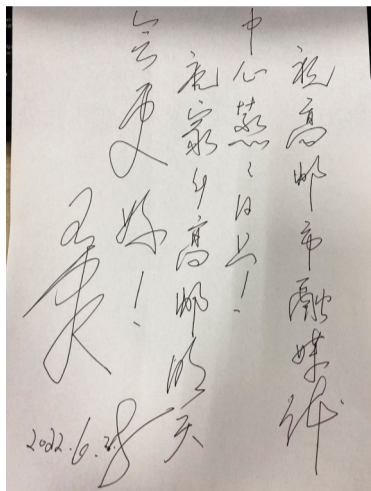 祝高邮市融媒体
中心蒸蒸日上！
祝家乡高邮明天
会更好！
2022.6.28